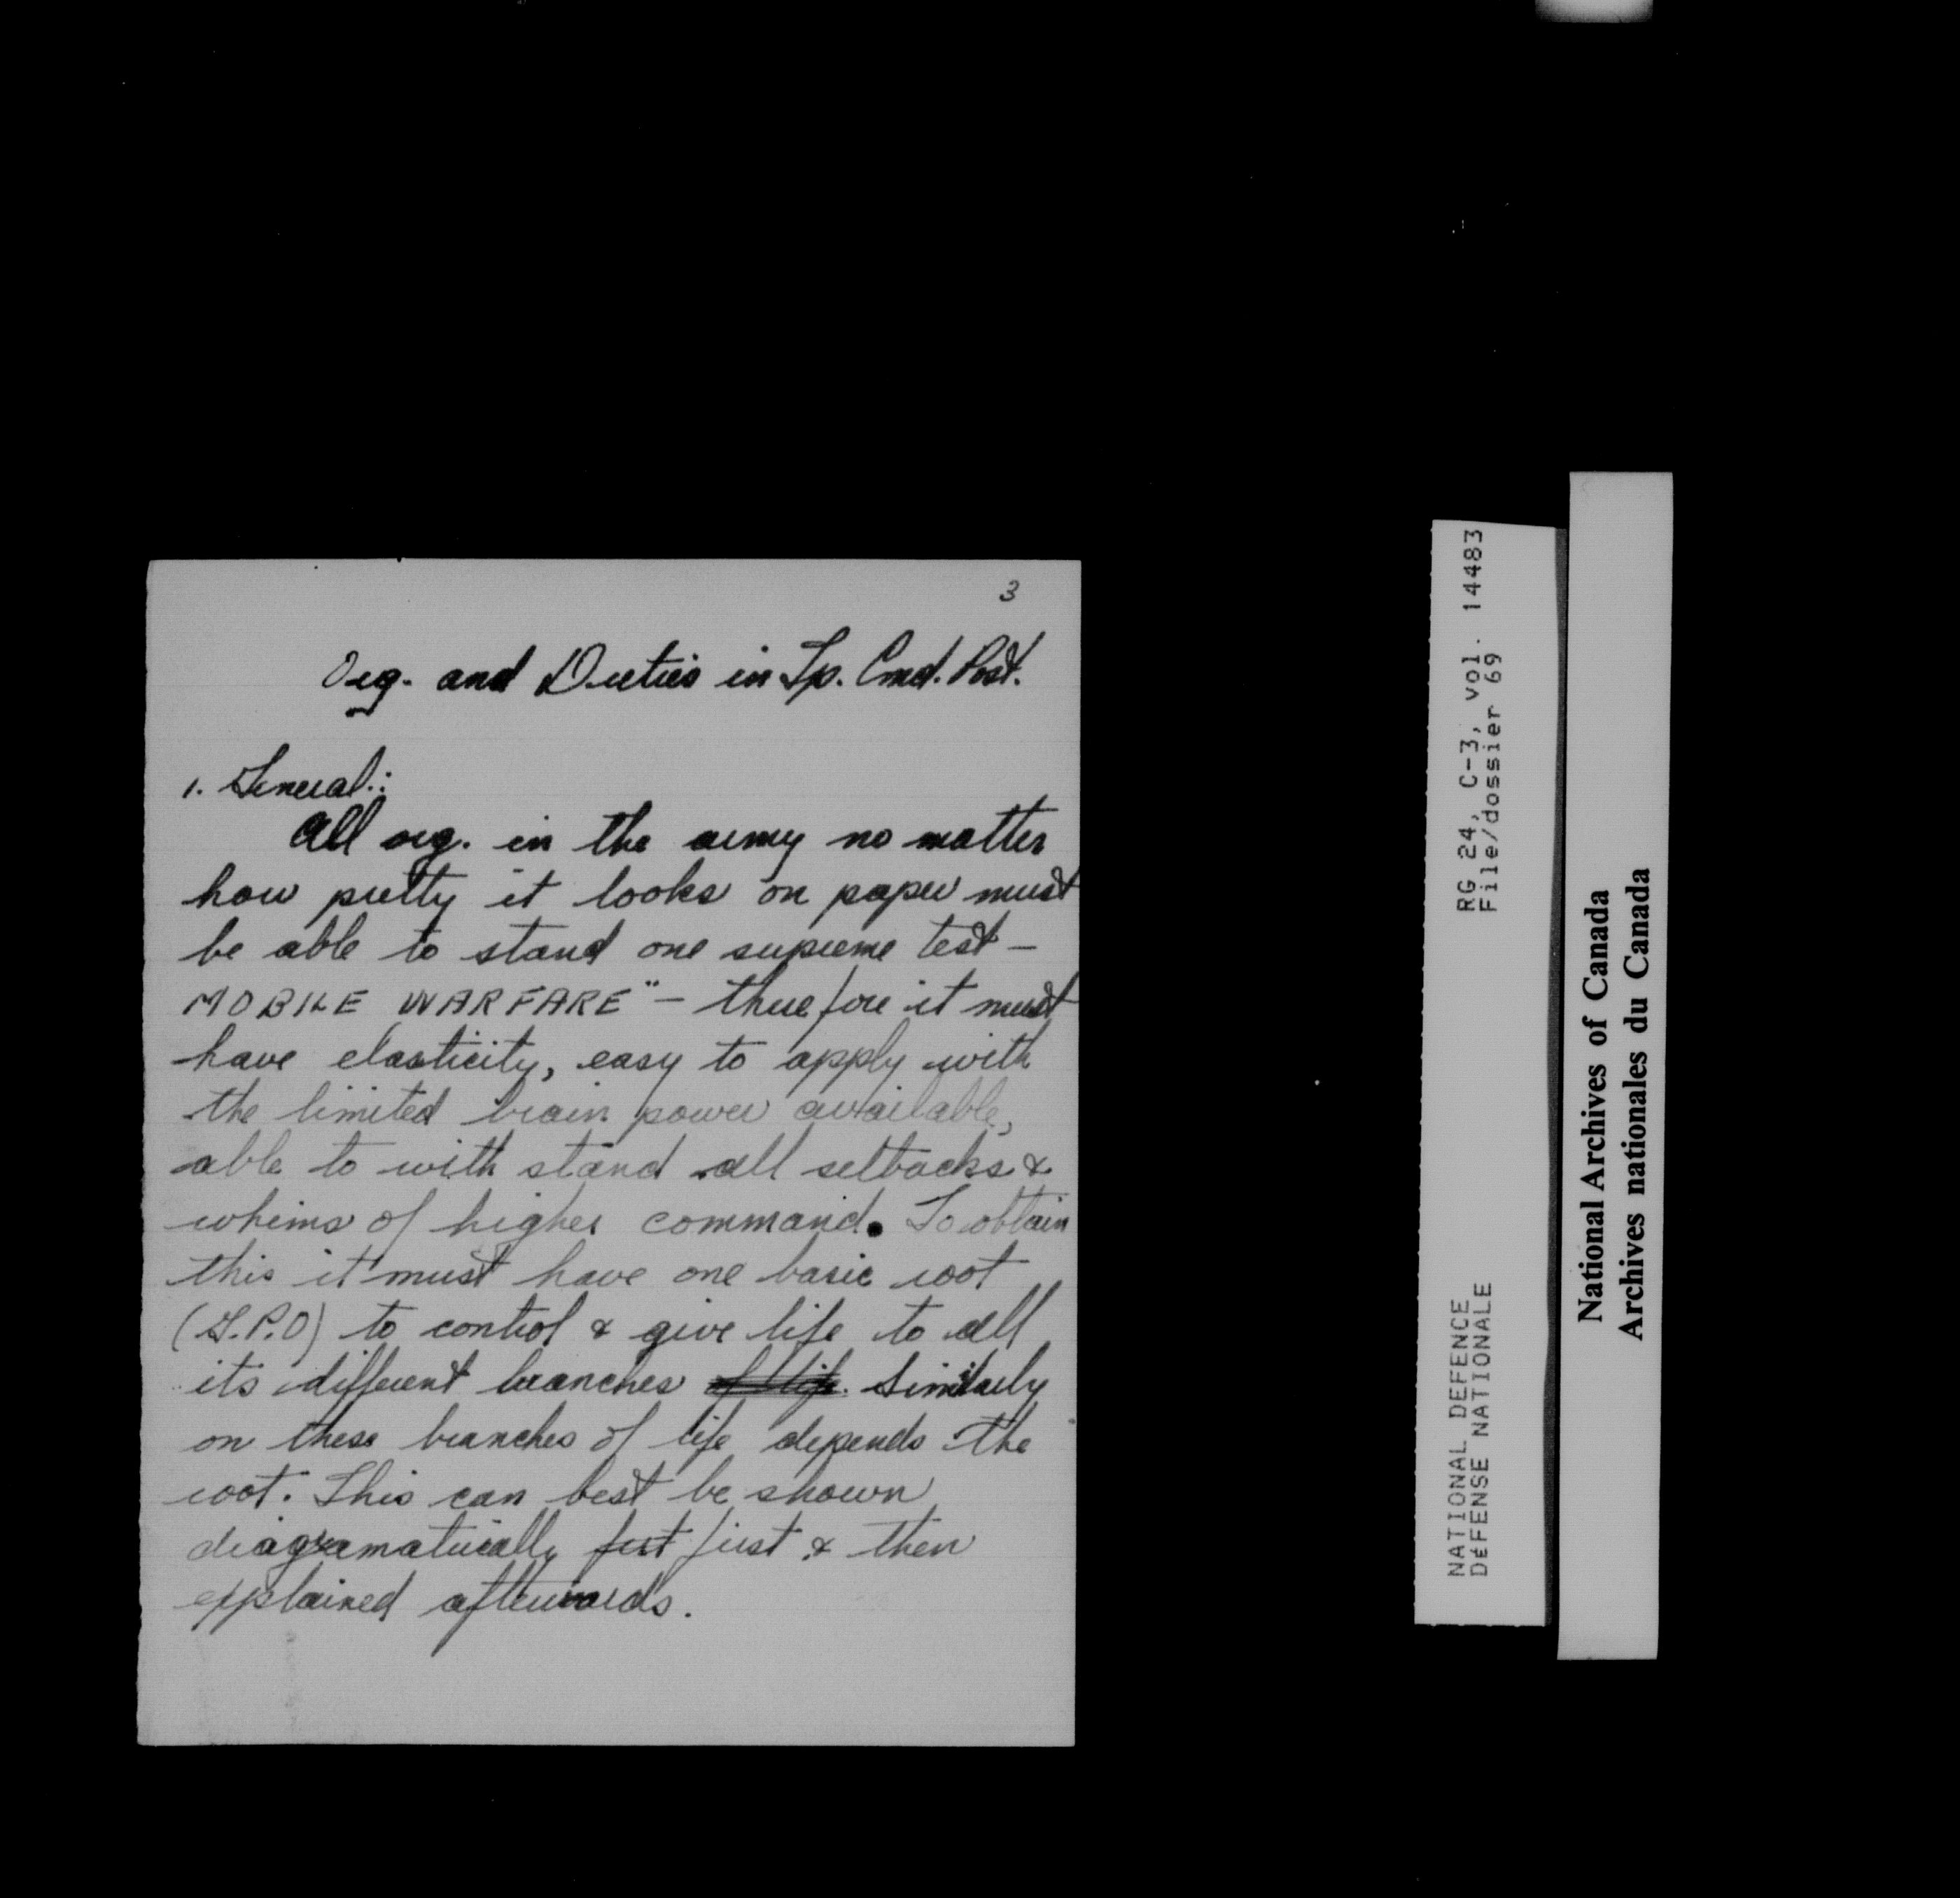 3
Org. and Duties in Tp. Cmd. Post.
1. General:
All org. in the army no matter
how pretty it looks on paper must
be able to stand one supreme test —
MOBILE WARFARE" — therefore it must
have elasticity, easy to apply with
the limited brain power available,
able to with stand all setbacks &
whims of higher command. To obtain
this it must have one basic root
(G.P.O) to control & give life to all
its different branches of life. Similarly
on these branches of life depends the
root. This can best be shown
diagramatically fist first & then
explained afterwards.
RG 24, C-3, vol. 14483
File/dossier 69
NATIONAL DEFENCE
DÉFENSE NATIONALE
National Archives of Canada
Archives nationales du Canada